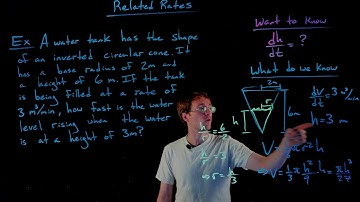 Related Rates
Ex A water tank has the shape
of an inverted circular cone. It
has a base radius of 2m and
a height of 6m. If the tank
is being filled at a rate of
3 m³/min, how fast is the water
level rising when the water
is at a height of 3m?
Want to Know
dh/dt = ?
What do we Know
dV/dt = 3 m³/min
h = 3 m
2m
6m
r
h
h/r = 6/2
h/r = 3
⇒ r = h/3
πr²h
⇒ V = 1/3 π h²/9 · h = πh³/27